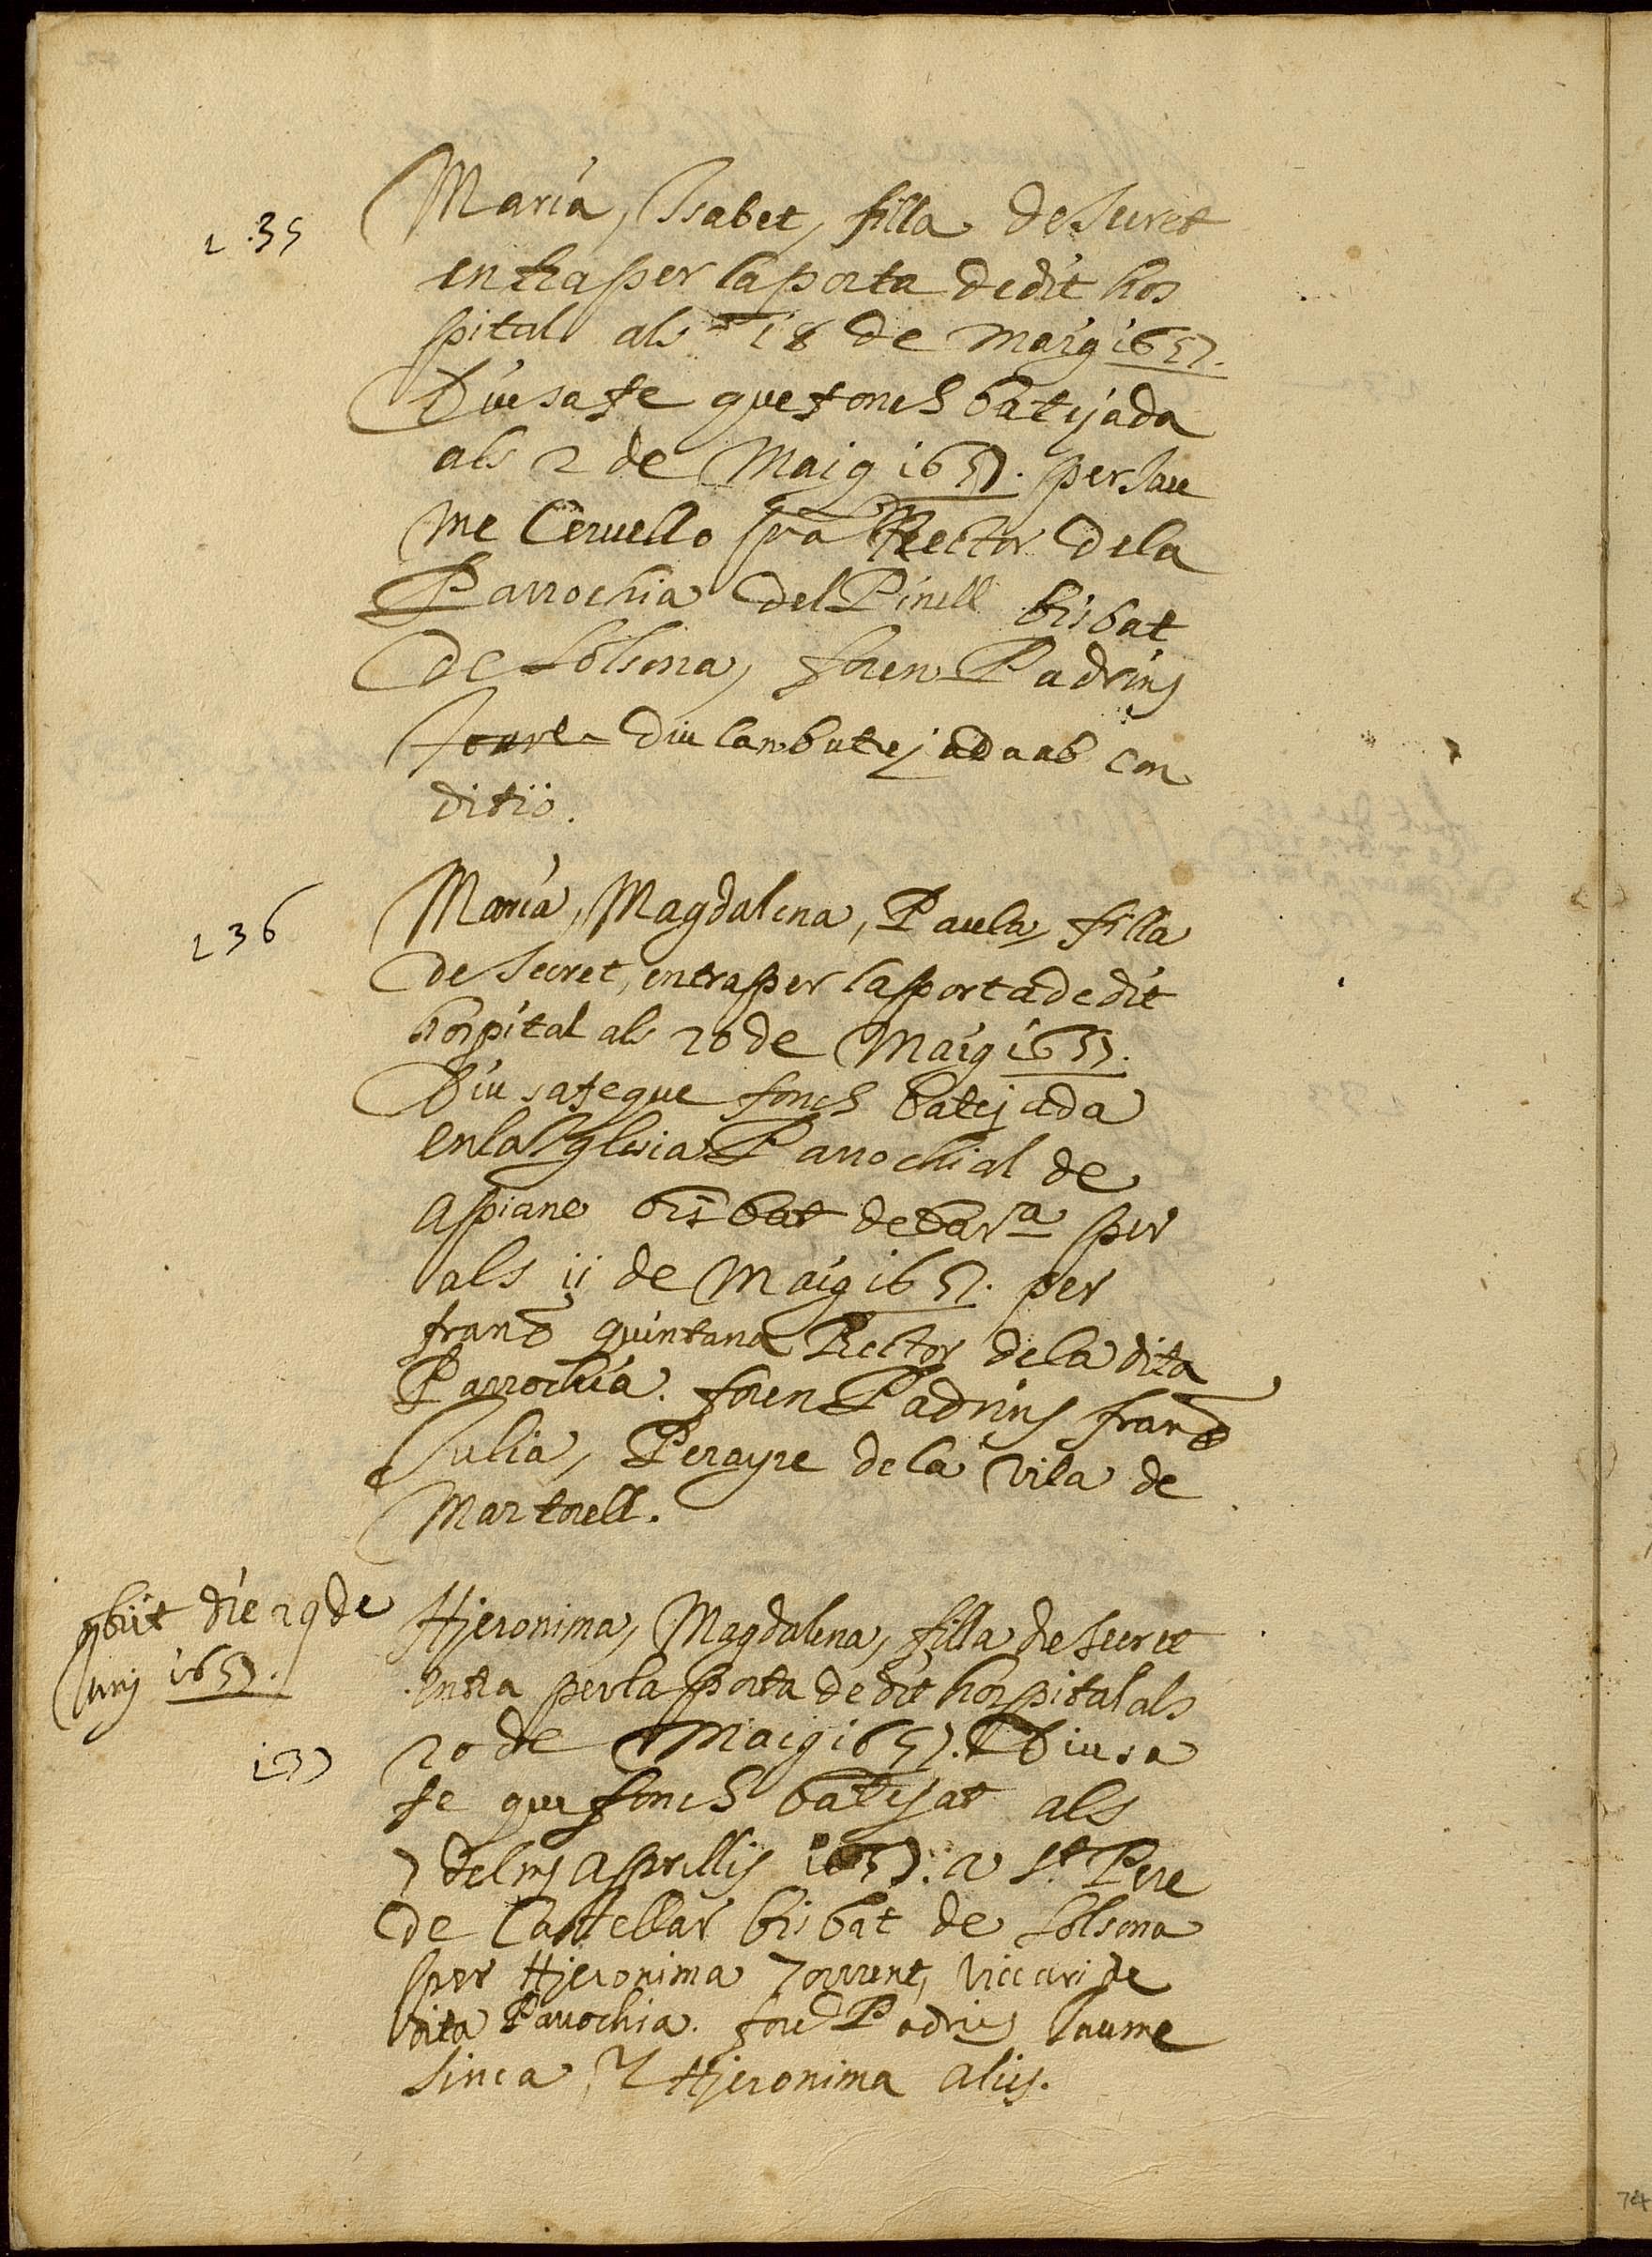 2.35
Maria, Isabet, filla de secret
entra per la porta de dit hos
pital als 18 de Maig 1657.
Diu sa fe que fonch batejada
als 2 de Maig 1657. per Jau
me Cervello pra Rector de la
Parrochia del Pinell bisbat
de Solsona, foren Padrins
diu lan batejada ab con
ditio.
236
Maria, Magdalena, Paula, filla
de secret, entra per la porta de dit
hospital als 20 de Maig 1657.
Diu sa fe que fonch batejada
en la Yglesia Parrochial de
apiane bisbat de Barna per
als 11 de Maig 1657. per
franco quintana Rector de la dita
Parrochia. foren Padrins franco
Julia, Perayre de la vila de
Martorell.
obiit die 29 de
Juny 1657.
237
Hjeronima, Magdalena, filla de secret
entra per la porta de dit hospital als
20 de Maig 1657. Diu sa
fe que fonch batejat als
7 del ms aprillis 1657. a St. Pere
de Castellar bisbat de Solsona
per Hjeronima Torrent, viccari de
dita Parrochia. foren Padrins Jaume
Sinca, Y Hjeronima aliis.
74